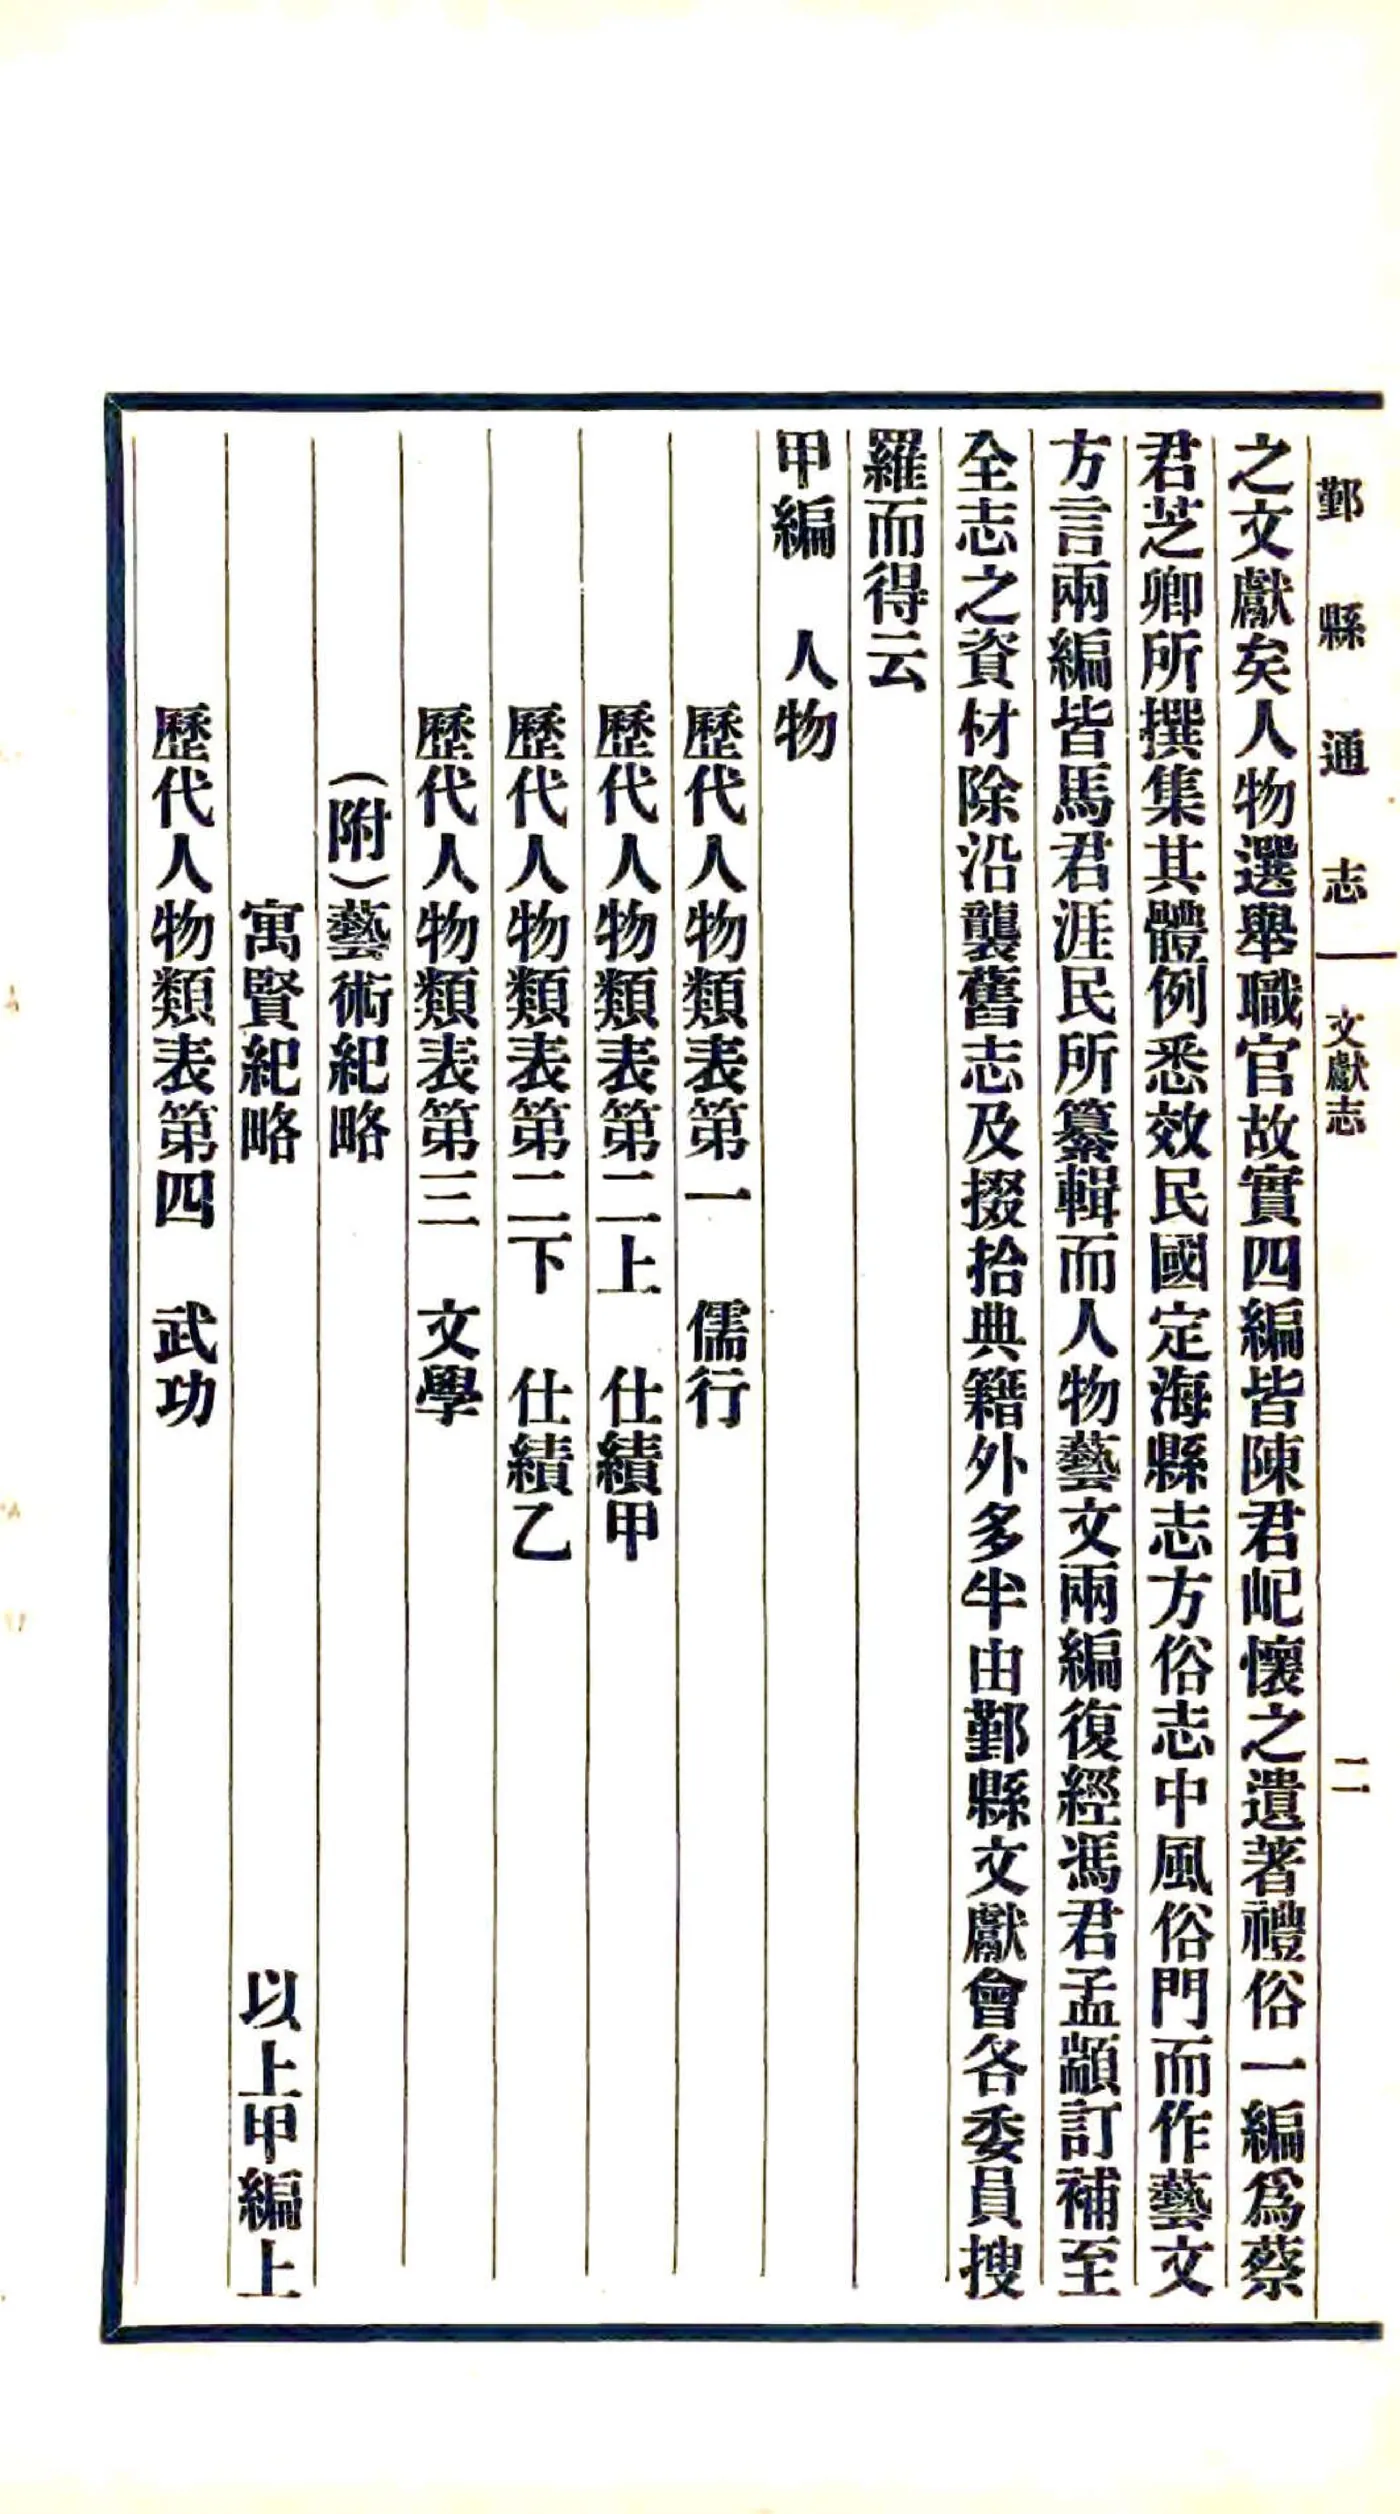 鄞縣通志 文獻志 二
之文獻矣人物選舉職官故實四編皆陳君屺懷之遺著禮俗一編爲蔡
君芝卿所撰集其體例悉效民國定海縣志方俗志中風俗門而作藝文
方言兩編皆馬君涯民所纂輯而人物藝文兩編復經馮君孟顓訂補至
全志之資材除沿襲舊志及掇拾典籍外多半由鄞縣文獻會各委員搜
羅而得云
甲編 人物
歷代人物類表第一 儒行
歷代人物類表第二上 仕績甲
歷代人物類表第二下 仕績乙
歷代人物類表第三 文學
(附)藝術紀略
寓賢紀略 以上甲編上
歷代人物類表第四 武功